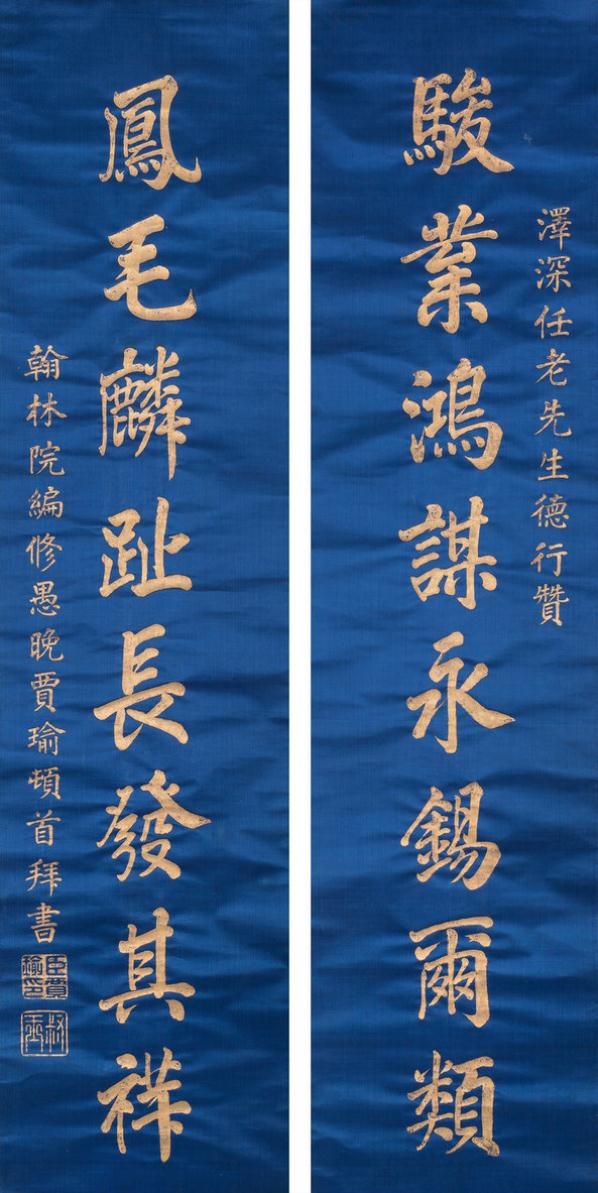 澤深任老先生德行贊
駿業鴻謀永錫爾類
鳳毛麟趾長發其祥
翰林院編修愚晚賈瑜頓首拜書
臣賈瑜印